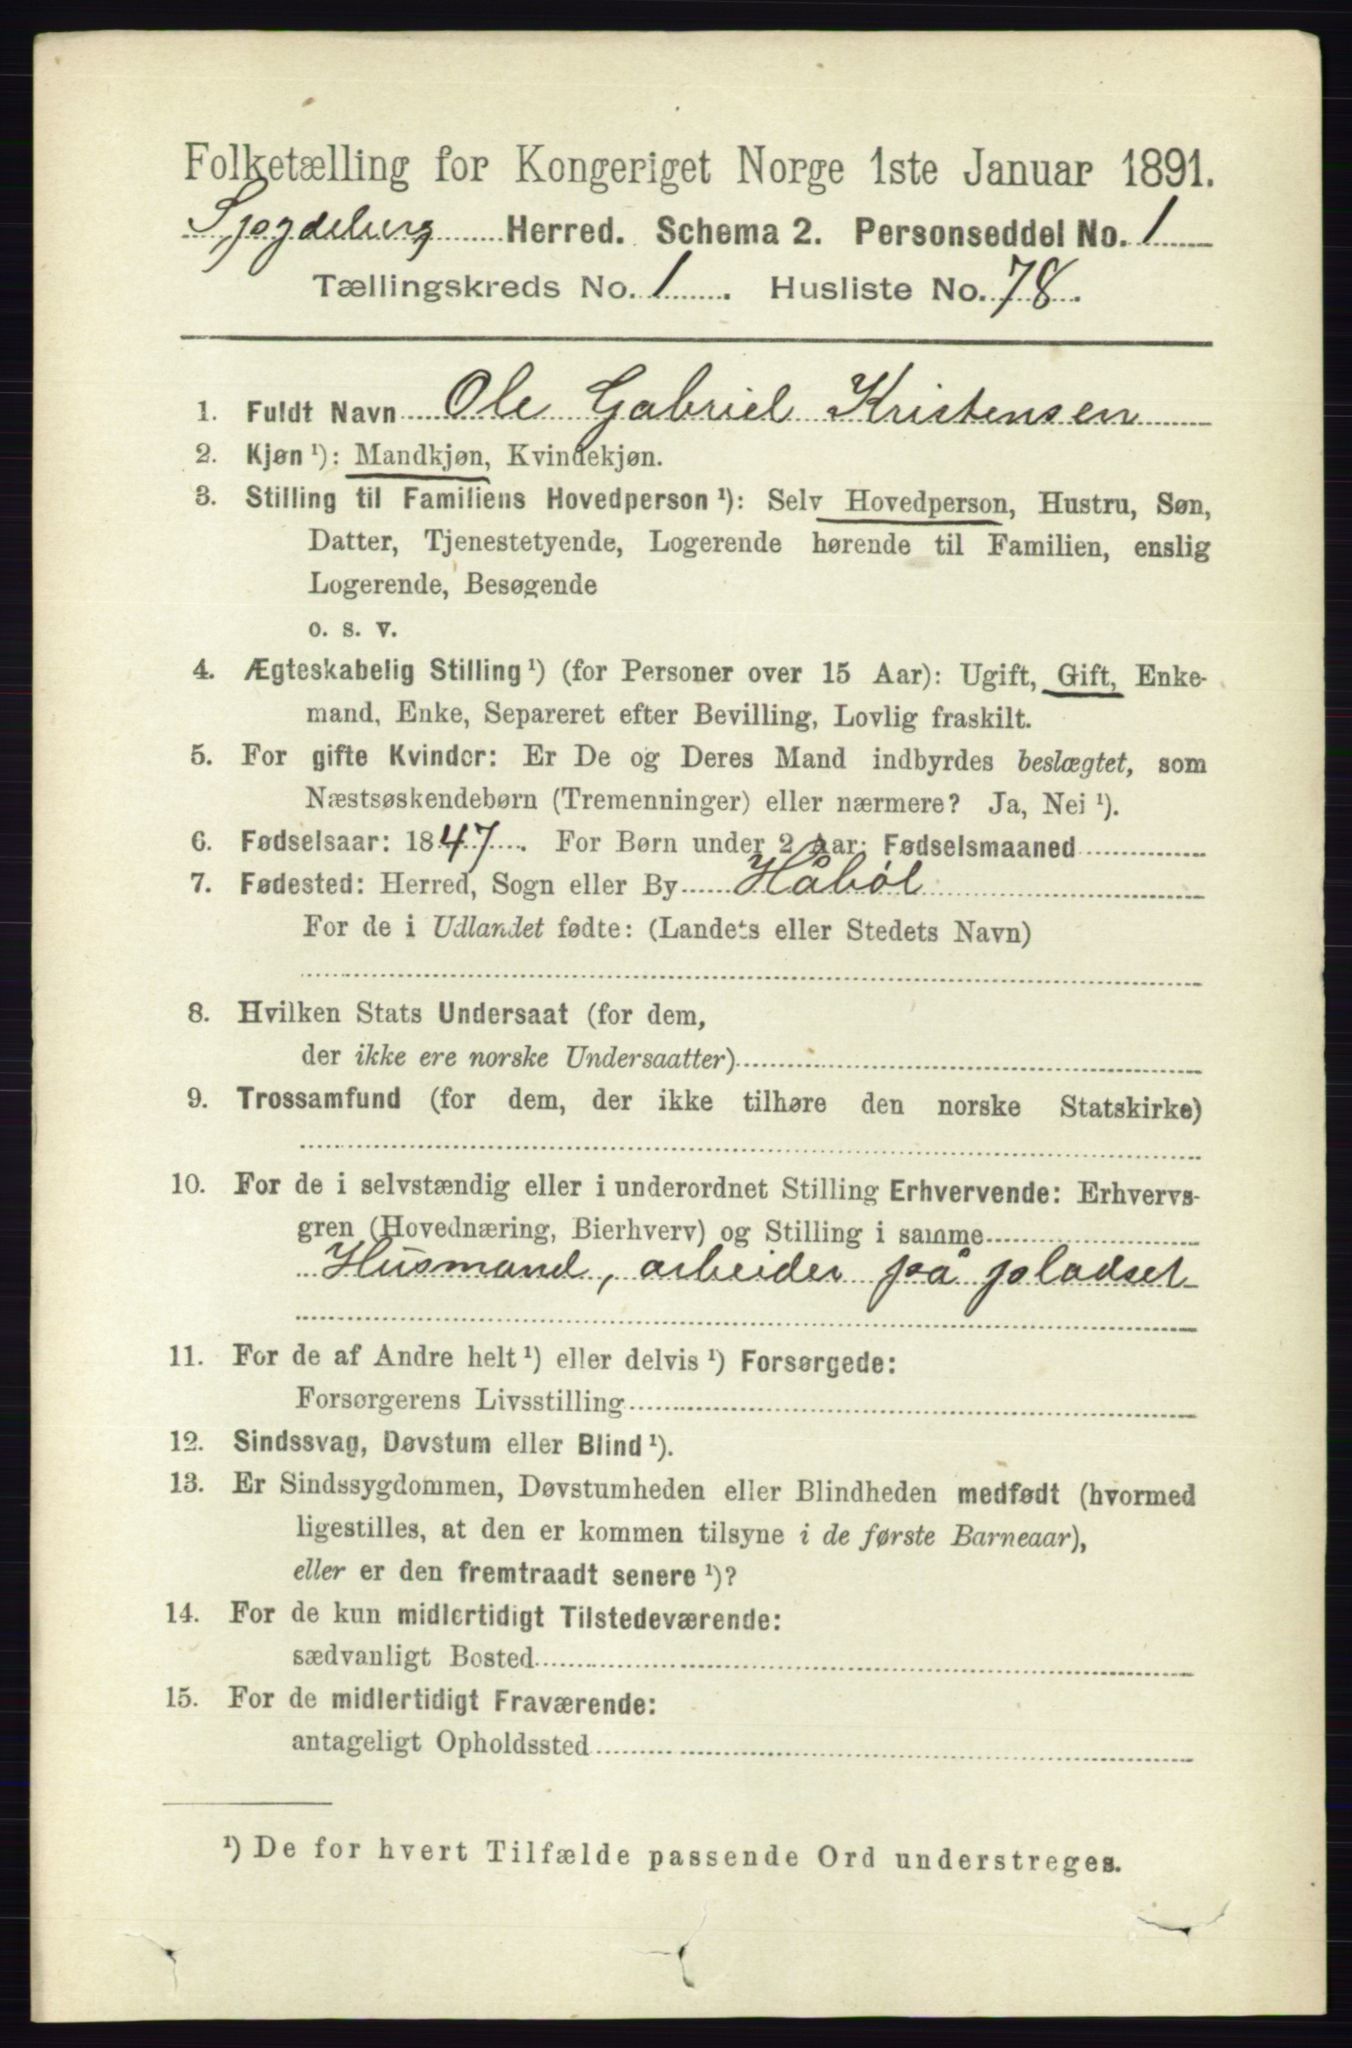 Folketælling for Kongeriget Norge 1ste Januar 1891.
Spydeberg Herred. Schema 2. Personseddel No. 1
Tællingskreds No. 1. Husliste No. 78.
1. Fuldt Navn Ole Gabriel Kristensen
2. Kjøn ¹): Mandkjøn, Kvindekjøn.
3. Stilling til Familiens Hovedperson ¹): Selv Hovedperson, Hustru, Søn,
Datter, Tjenestetyende, Logerende hørende til Familien, enslig
Logerende, Besøgende
o. s. v.
4. Ægteskabelig Stilling ¹) (for Personer over 15 Aar): Ugift, Gift, Enke-
mand, Enke, Separeret efter Bevilling, Lovlig fraskilt.
5. For gifte Kvinder: Er De og Deres Mand indbyrdes beslægtet, som
Næstsøskendebørn (Tremenninger) eller nærmere? Ja, Nei ¹).
6. Fødselsaar: 1847. For Børn under 2 Aar: Fødselsmaaned
7. Fødested: Herred, Sogn eller By Håbøl
For de i Udlandet fødte: (Landets eller Stedets Navn)
8. Hvilken Stats Undersaat (for dem,
der ikke ere norske Undersaatter)
9. Trossamfund (for dem, der ikke tilhøre den norske Statskirke)
10. For de i selvstændig eller i underordnet Stilling Erhvervende: Erhvervs-
gren (Hovednæring, Bierhverv) og Stilling i samme
Husmand, arbeider på pladset
11. For de af Andre helt ¹) eller delvis ¹) Forsørgede:
Forsørgerens Livsstilling
12. Sindssvag, Døvstum eller Blind ¹).
13. Er Sindssygdommen, Døvstumheden eller Blindheden medfødt (hvormed
ligestilles, at den er kommen tilsyne i de første Barneaar),
eller er den fremtraadt senere ¹)?
14. For de kun midlertidigt Tilstedeværende:
sædvanligt Bosted
15. For de midlertidigt Fraværende:
antageligt Opholdssted
¹) De for hvert Tilfælde passende Ord understreges.